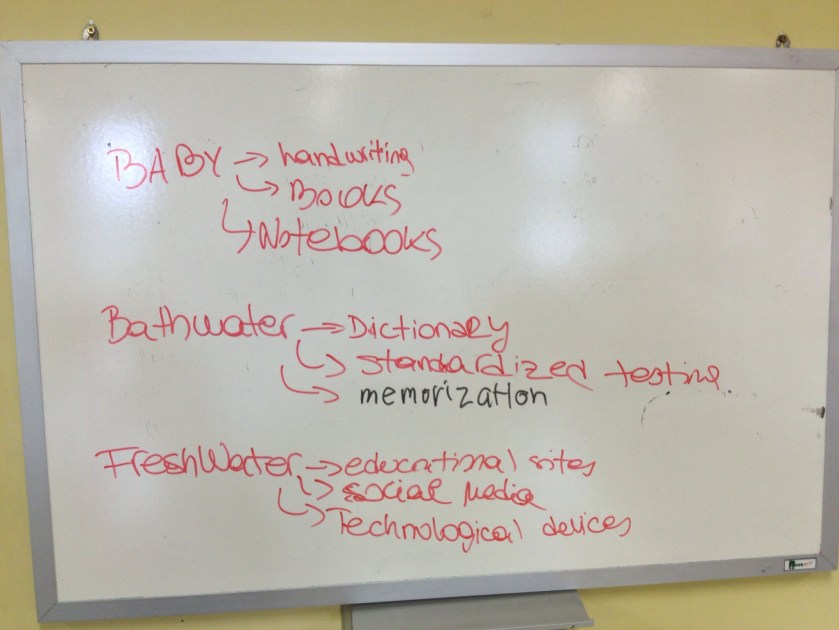 BABY → handwriting
↳ Books
↳ Notebooks
Bathwater → Dictionary
↳ standardized testing
↳ memorization
FreshWater → educational sites
↳ social media
↳ Technological devices